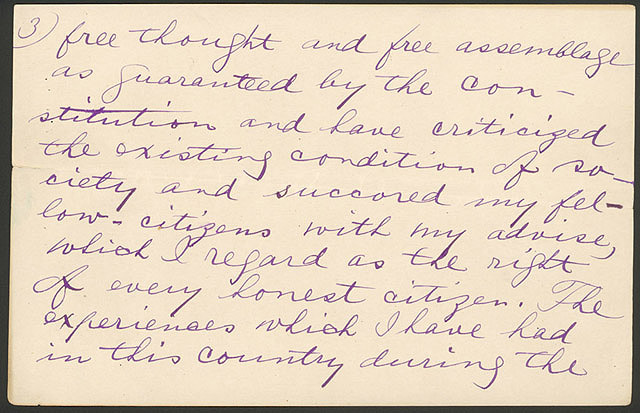 3) free thought and free assemblage
as guaranteed by the con-
stitution and have criticized
the existing condition of so-
ciety and succored my fel-
low-citizens with my advise,
which I regard as the right
of every honest citizen. The
experiences which I have had
in this country during the